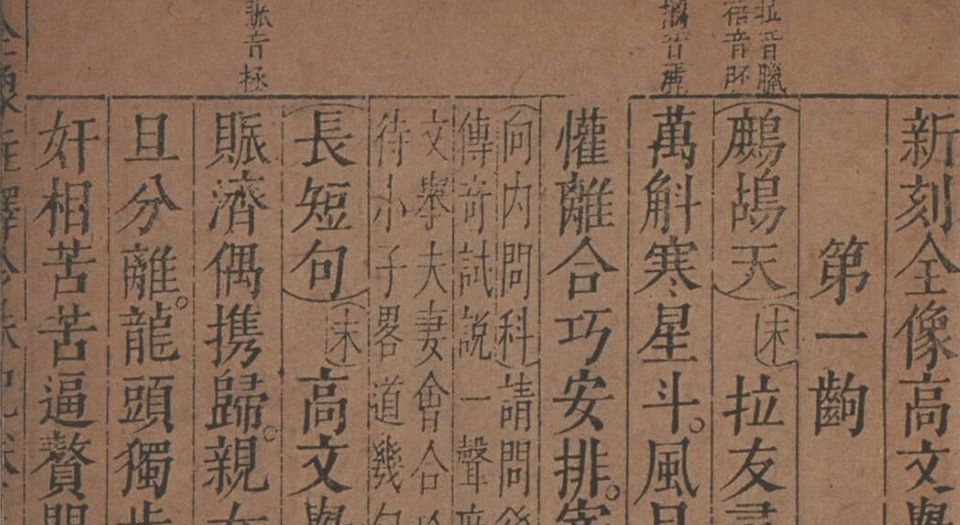 拉音臘
音
賑音拯
新刻全像高文舉
第一齣
鷓鴣天 末 拉友
萬斛寒星斗。風
懽離合巧安排。
向內問科請問後
傳奇試說一聲
文舉夫妻會合
待小子畧道幾
長短句 末 高文舉
賑濟偶携歸。親
旦分離。龍頭獨步
奸相苦苦逼贅